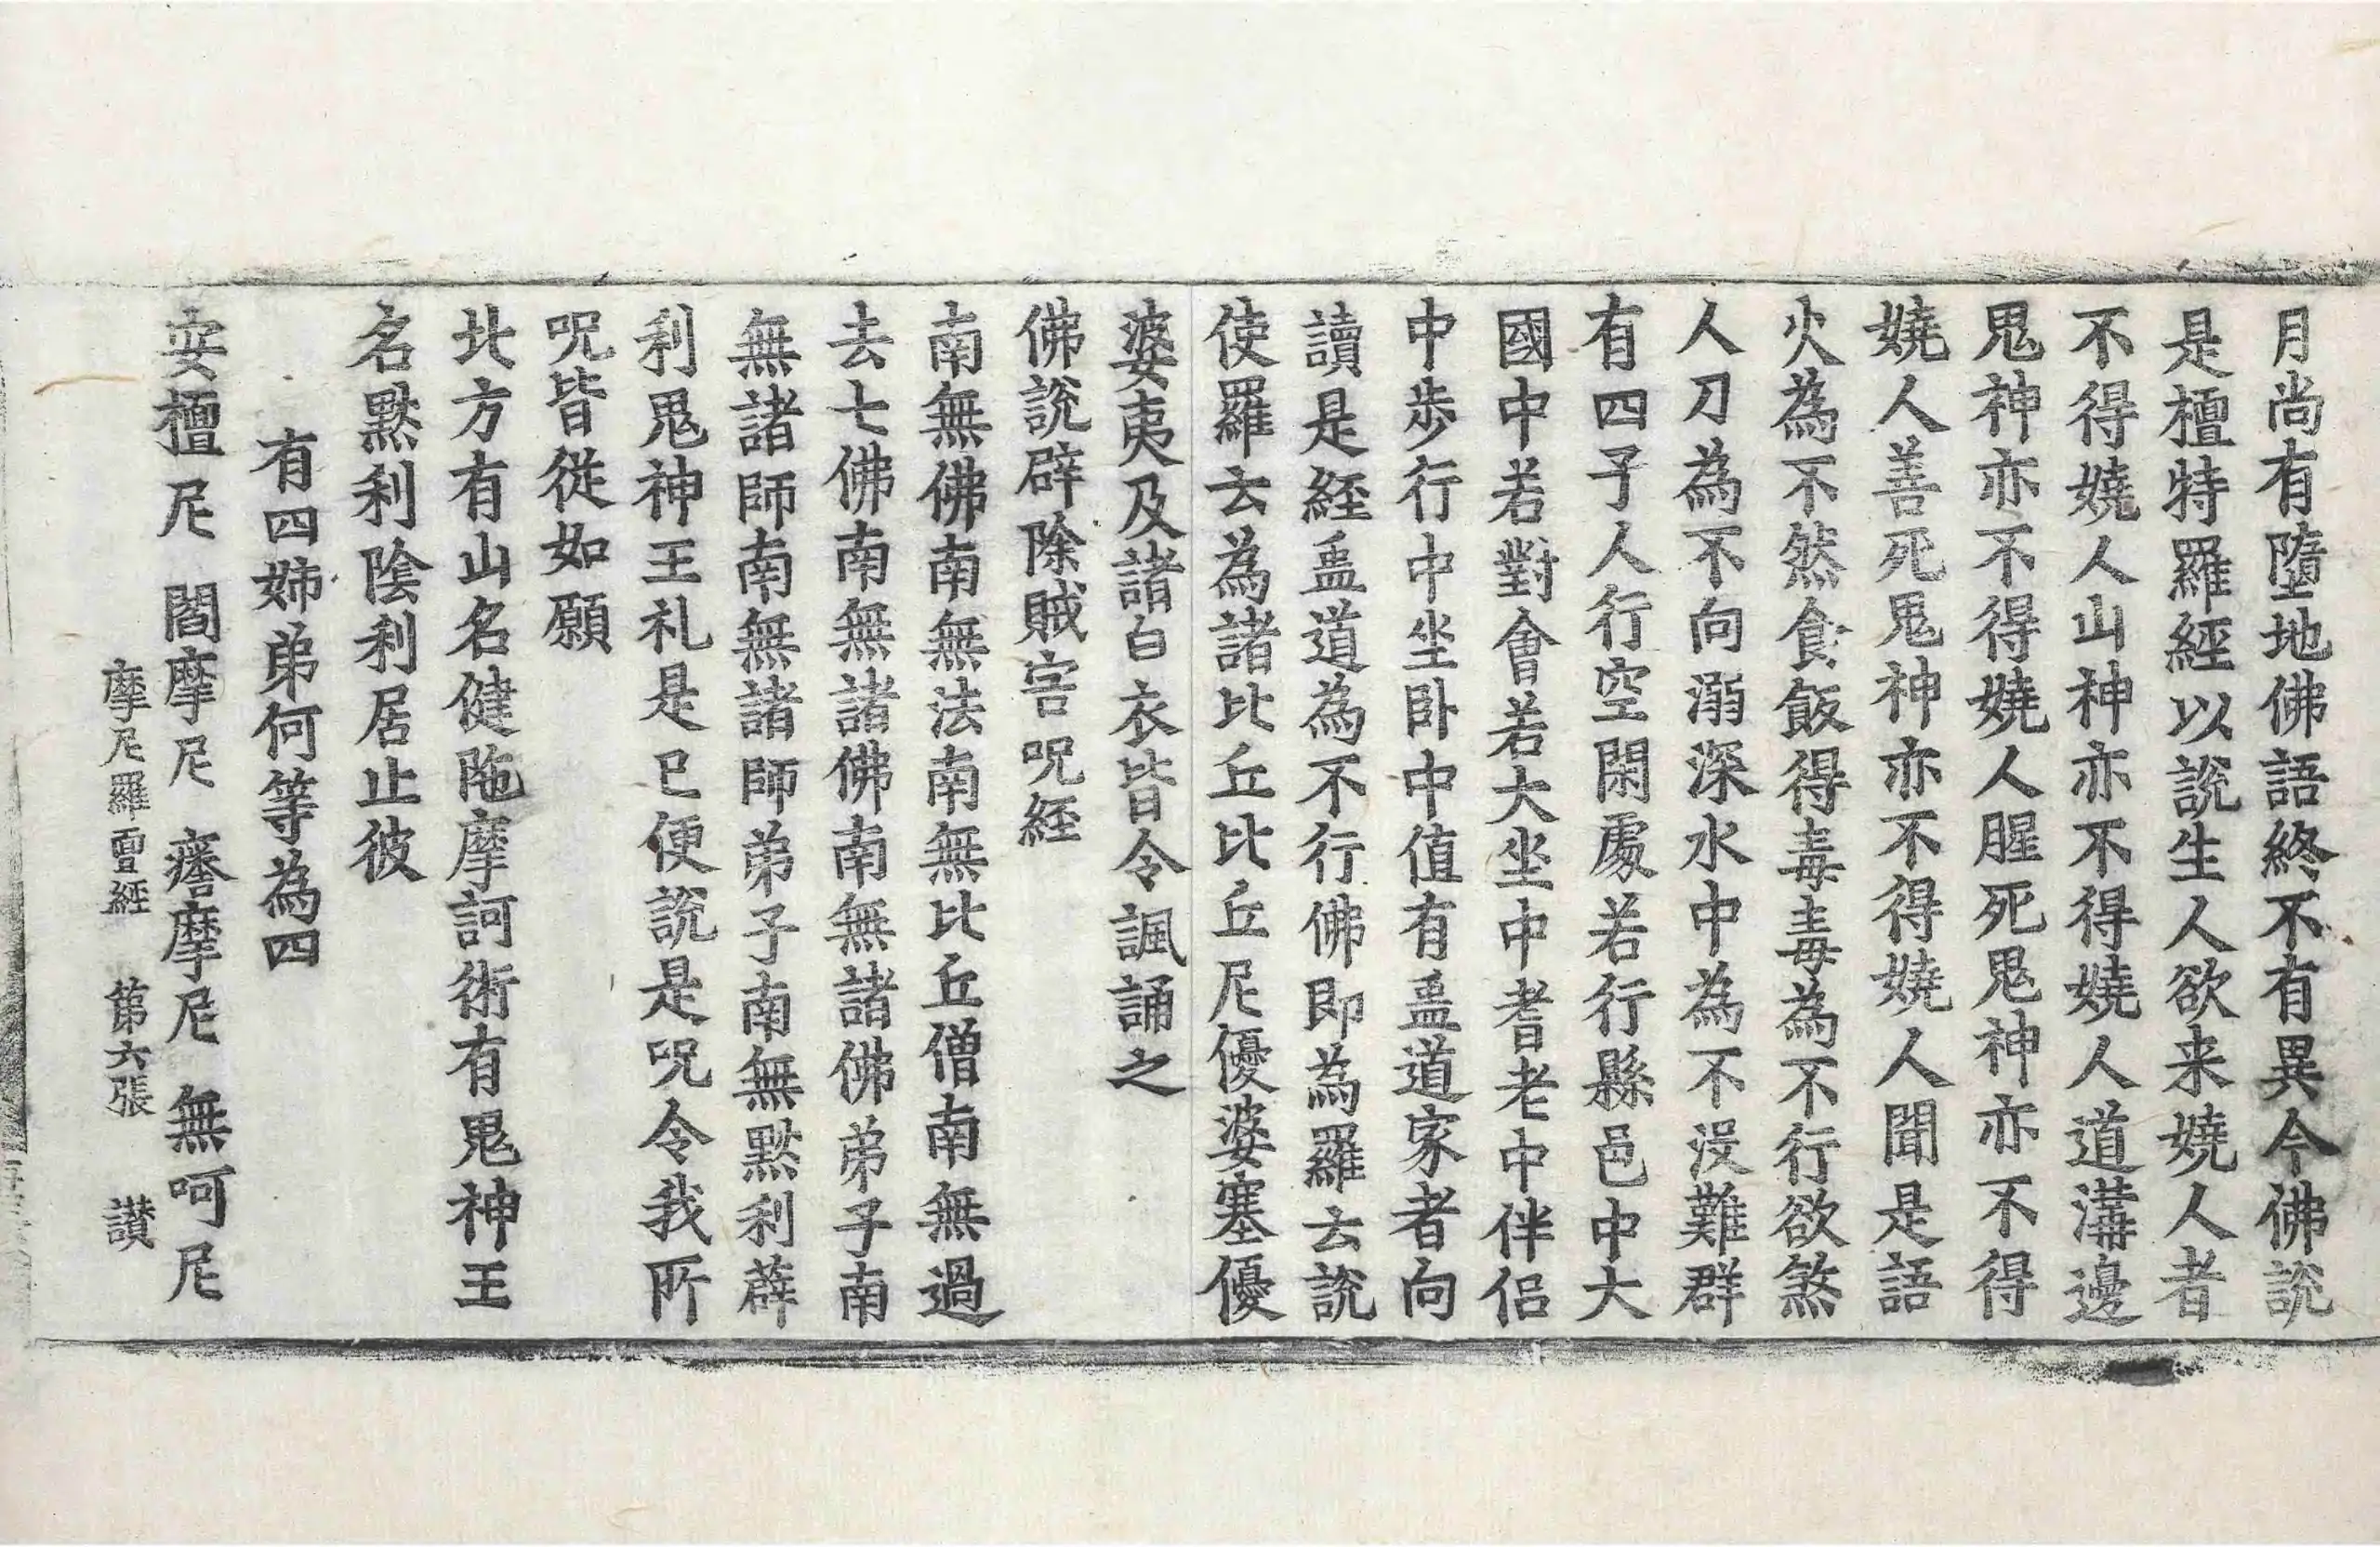 月尚有墮地佛語終不有異今佛說
是檀特羅經以說生人欲来嬈人者
不得嬈人山神亦不得嬈人道溝邊
鬼神亦不得嬈人腥死鬼神亦不得
嬈人善死鬼神亦不得嬈人聞是語
火為不然食飯得毒毒為不行欲煞
人刀為不向溺深水中為不没難群
有四子人行空閑處若行縣邑中大
國中若對會若大坐中耆老中伴侶
中步行中坐卧中值有盗道家者向
讀是經盗道為不行佛即為羅云說
使羅云為諸比丘比丘尼優婆塞優
婆夷及諸白衣皆令諷誦之
佛說辟除賊害呪經
南無佛南無法南無比丘僧南無過
去七佛南無諸佛南無諸佛弟子南
無諸師南無諸師弟子南無黙利薜
利鬼神王礼是已便說是呪令我所
呪皆従如願
北方有山名健陁摩訶術有鬼神王
名黙利陰利居止彼
有四姉弟何等為四
安檀尼 閻摩尼 𤺺摩尼 無呵尼
摩尼羅亶經 第六張 讃